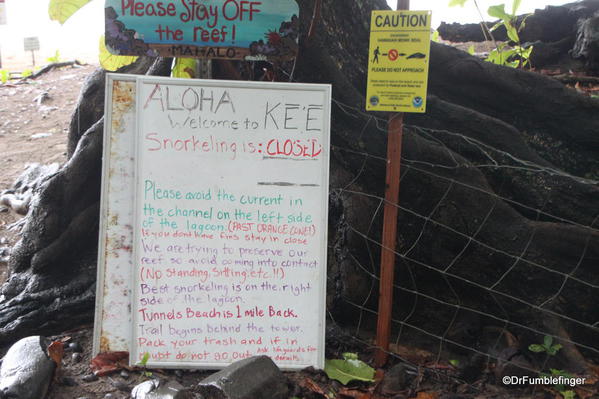 Please Stay OFF
the reef!
MAHALO
CAUTION
ENDANGERED
HAWAIIAN MONK SEAL
PLEASE DO NOT APPROACH
ALOHA
Welcome to KĒ'Ē
Snorkeling is: CLOSED
Please avoid the current in
the channel on the left side
of the lagoon. (PAST ORANGE CONE!)
If you dont have fins stay in close
We are trying to preserve our
reef so avoid coming into contact
(No Standing, Sitting, etc.!!)
Best snorkeling is on the right
side of the lagoon.
Tunnels Beach is 1 mile Back.
Trail begins behind the tower.
Pack your trash and if in
doubt do not go out. Ask lifeguards for
details.
©DrFumblefinger